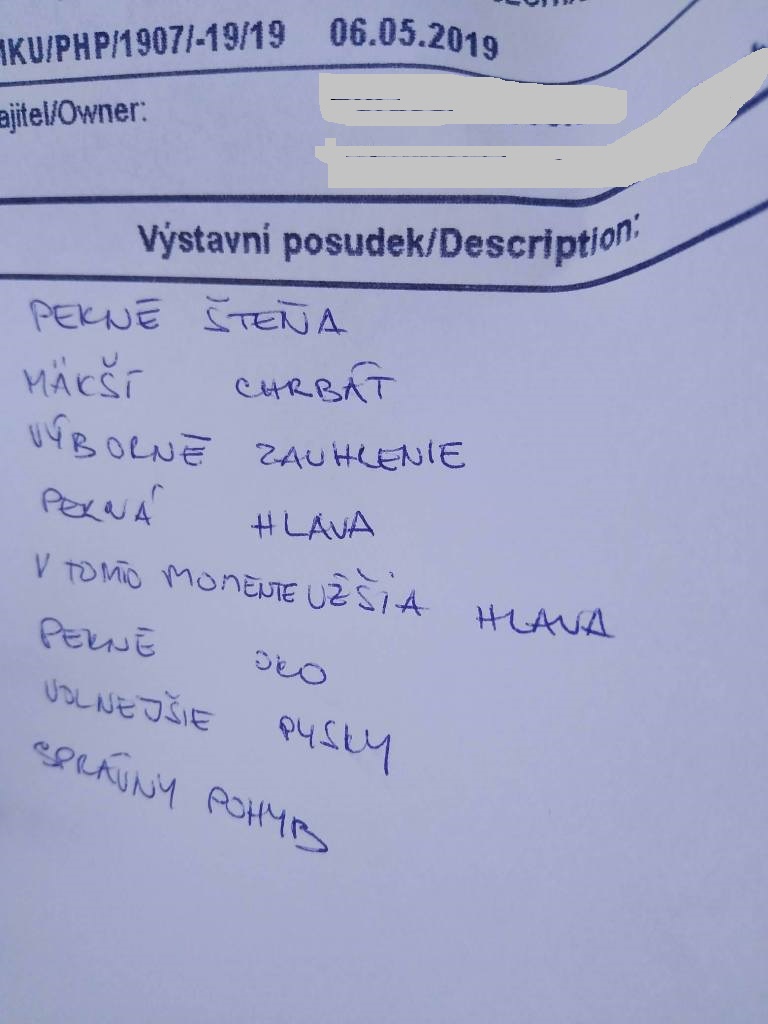 MKU/PHP/1907/-19/19 06.05.2019
ajitel/Owner:
Výstavní posudek/Description:
PEKNÉ ŠTEŇA
MÄKŠÍ CHRBÁT
VÝBORNÉ ZAUHLENIE
PEKNÁ HLAVA
V TOMTO MOMENTE UŽŠIA HLAVA
PEKNÉ OKO
VOLNEJŠIE PYSKY
SPRÁVNY POHYB